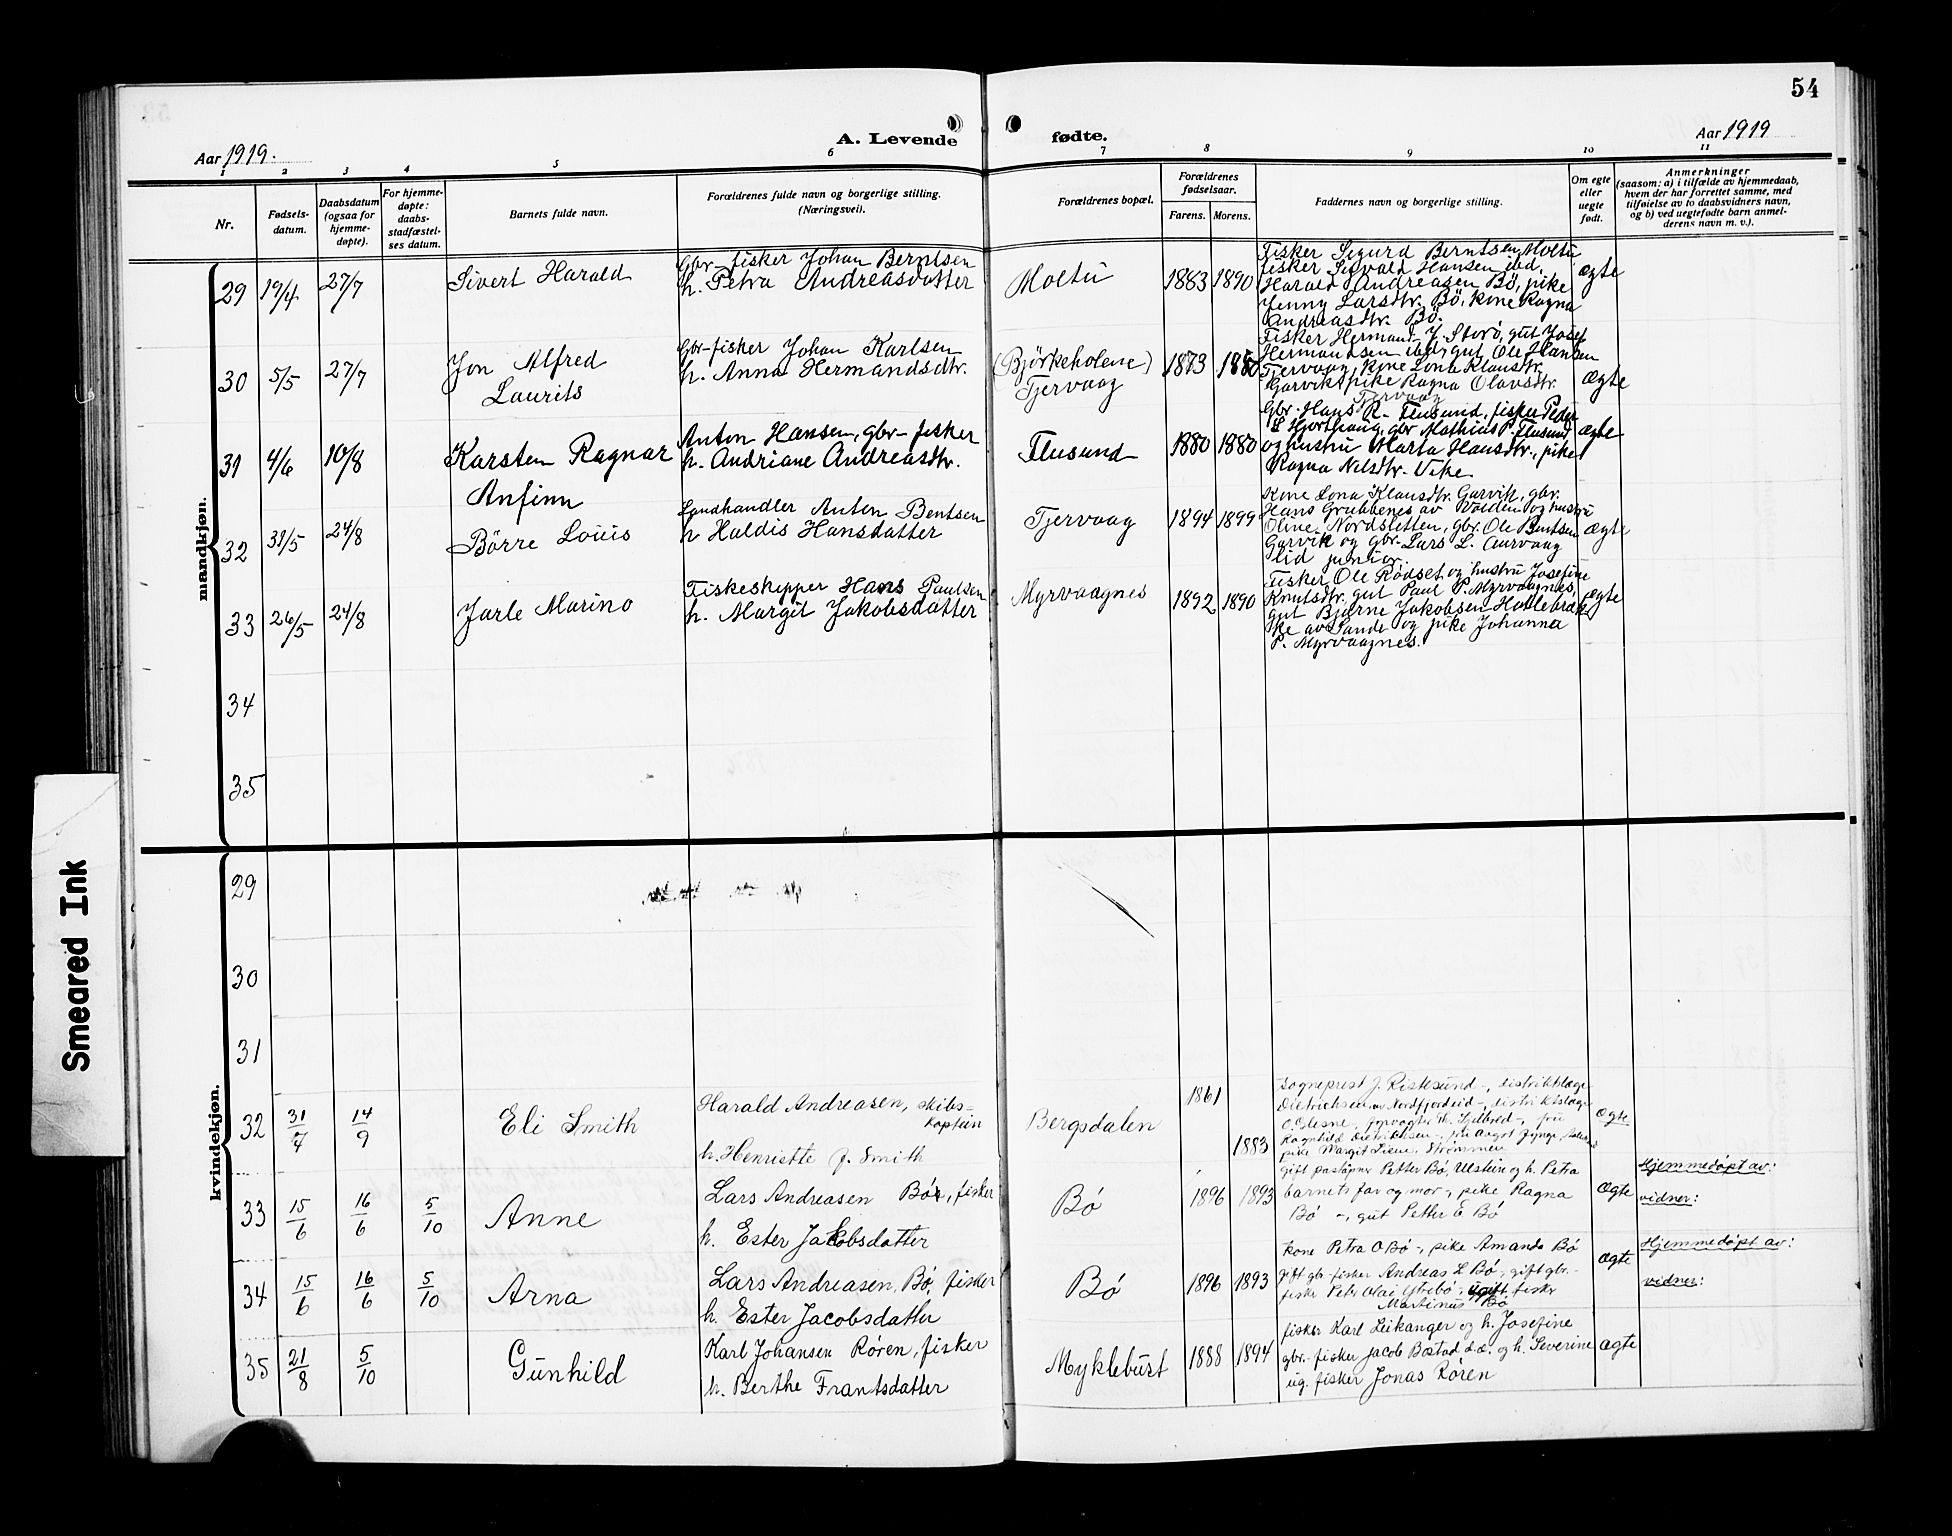 54
Aar 1919.
A. Levende fødte.
Aar 1919
1 2 3 4 5 6 7 8 9 10 11
Nr.
Fødsels-
datum.
Daabsdatum
(ogsaa for
hjemme-
døpte).
For hjemme-
døpte:
daabs-
stadfæstel-
ses datum.
Barnets fulde navn.
Forældrenes fulde navn og borgerlige stilling.
(Næringsvei).
Forældrenes bopæl.
Forældrenes
fødselsaar.
Farens. Morens.
Faddernes navn og borgerlige stilling.
Om egte
eller
uegte
født.
Anmerkninger
(saasom: a) i tilfælde av hjemmedaab,
hvem der har forrettet samme, med
tilføielse av to daabsvidners navn,
og b) ved uegtefødte barn anmel-
derens navn m. v.).
mandkjøn.
29 19/4 27/7 Sivert Harald
Gbr-fisker Johan Berntsen
h. Petra Andreasdatter
Moltu 1883 1890
Fisker Sigurd Berntsen Moltu
fisker Sigvald Hansen ibd,
Harald Andreasen Bö, pike
Jenny Larsdtr. Bö, kone Ragna
Andreasdtr. Bö.
Ægte
30 5/5 27/7 Jon Alfred
Laurits
Gbr-fisker Johan Karlsen
h. Anna Hermandsdtr.
(Björkeholene)
Tjervaag
1873 1880
Fisker Hermand J. Storö, gut Josef
Hermandsen ibd, gut Ole Hansen
Tjervaag, kone Lona Klausdtr.
Garvik, pike Ragna Olavsdtr.
Tjervaag
Ægte
31 4/6 10/8 Karsten Ragnar
Anfinn
Anton Hansen, gbr-fisker
h. Andriane Andreasdtr.
Flusund 1880 1880
Gbr. Hans R. Flusund, fisker Peder
L Hjorthaug, gbr Mathias P. Flusund
og hustru Marta Hansdtr., pike
Ragna Nilsdtr. Vike
ægte
32 31/5 24/8 Börre Louis
Landhandler Anton Bentsen
h Haldis Hansdatter
Tjervaag 1894 1899
Kone Lona Klausdtr. Garvik, gbr.
Hans Grubbenes av Volden og hustru
Oline Nordsletten, gbr. Ole Bentsen
Garvik og gbr. Lars L. Aurvaag
lid junior.
Ægte
33 26/5 24/8 Jarle Marino
Fiskeskipper Hans Paulsen
h. Margit Jakobsdatter
Myrvaagnes 1892 1890
Fisker Ole Rödset og hustru Josefine
Knutsdtr. gut Paul P. Myrvaagnes,
gut Bjarne Jakobsen Hallebræk
ke av Sande og pike Johanna
P. Myrvaagnes.
Ægte
34
35
kvindekjøn.
29
30
31
32 31/7 14/9 Eli Smith
Harald Andreasen, skibs-
kaptein
h. Henriette J. Smith
Bergsdalen 1861 1883
Sogneprest J. Ristesund -, distriktslæge
Dietrichsen av Nordfjordeid -, distriktslæge
-, fru
Ragnhild Dietrichsen -, fru
pike Margit Strømmen
Ægte
33 15/6 16/6 5/10 Anne
Lars Andreasen Bö, fisker
h. Ester Jakobsdatter
Bø 1896 1893
gift Petter Bø, Ulstein og h. Petra
barnets far og mor -, pike Ragna
Bø -, gut Petter E Bø
Ægte
Hjemmedøpt av:
vidner:
34 15/6 16/6 5/10 Arna
Lars Andreasen, Bø, fisker
h. Ester Jacobsdatter
Bø 1896 1893
Kone Petra O Bø -, pike Amanda Bø
gift gbr fisker Andreas L Bø -, gift gbr.-
fisker Petr Olai Ytrebø -, ugift fisker
Martinus Bø
Ægte
Hjemmedøpt av:
vidner:
35 21/8 5/10 Gunhild
Karl Johansen Røren, fisker
h. Berthe Frantsdatter
Myklebust 1888 1894
fisker Karl Leikanger og h. Josefine
gbr.-fisker Jacob Bøstad s.æ. og h. Severine
ug. fisker Jonas Røren
ægte
Smeared Ink